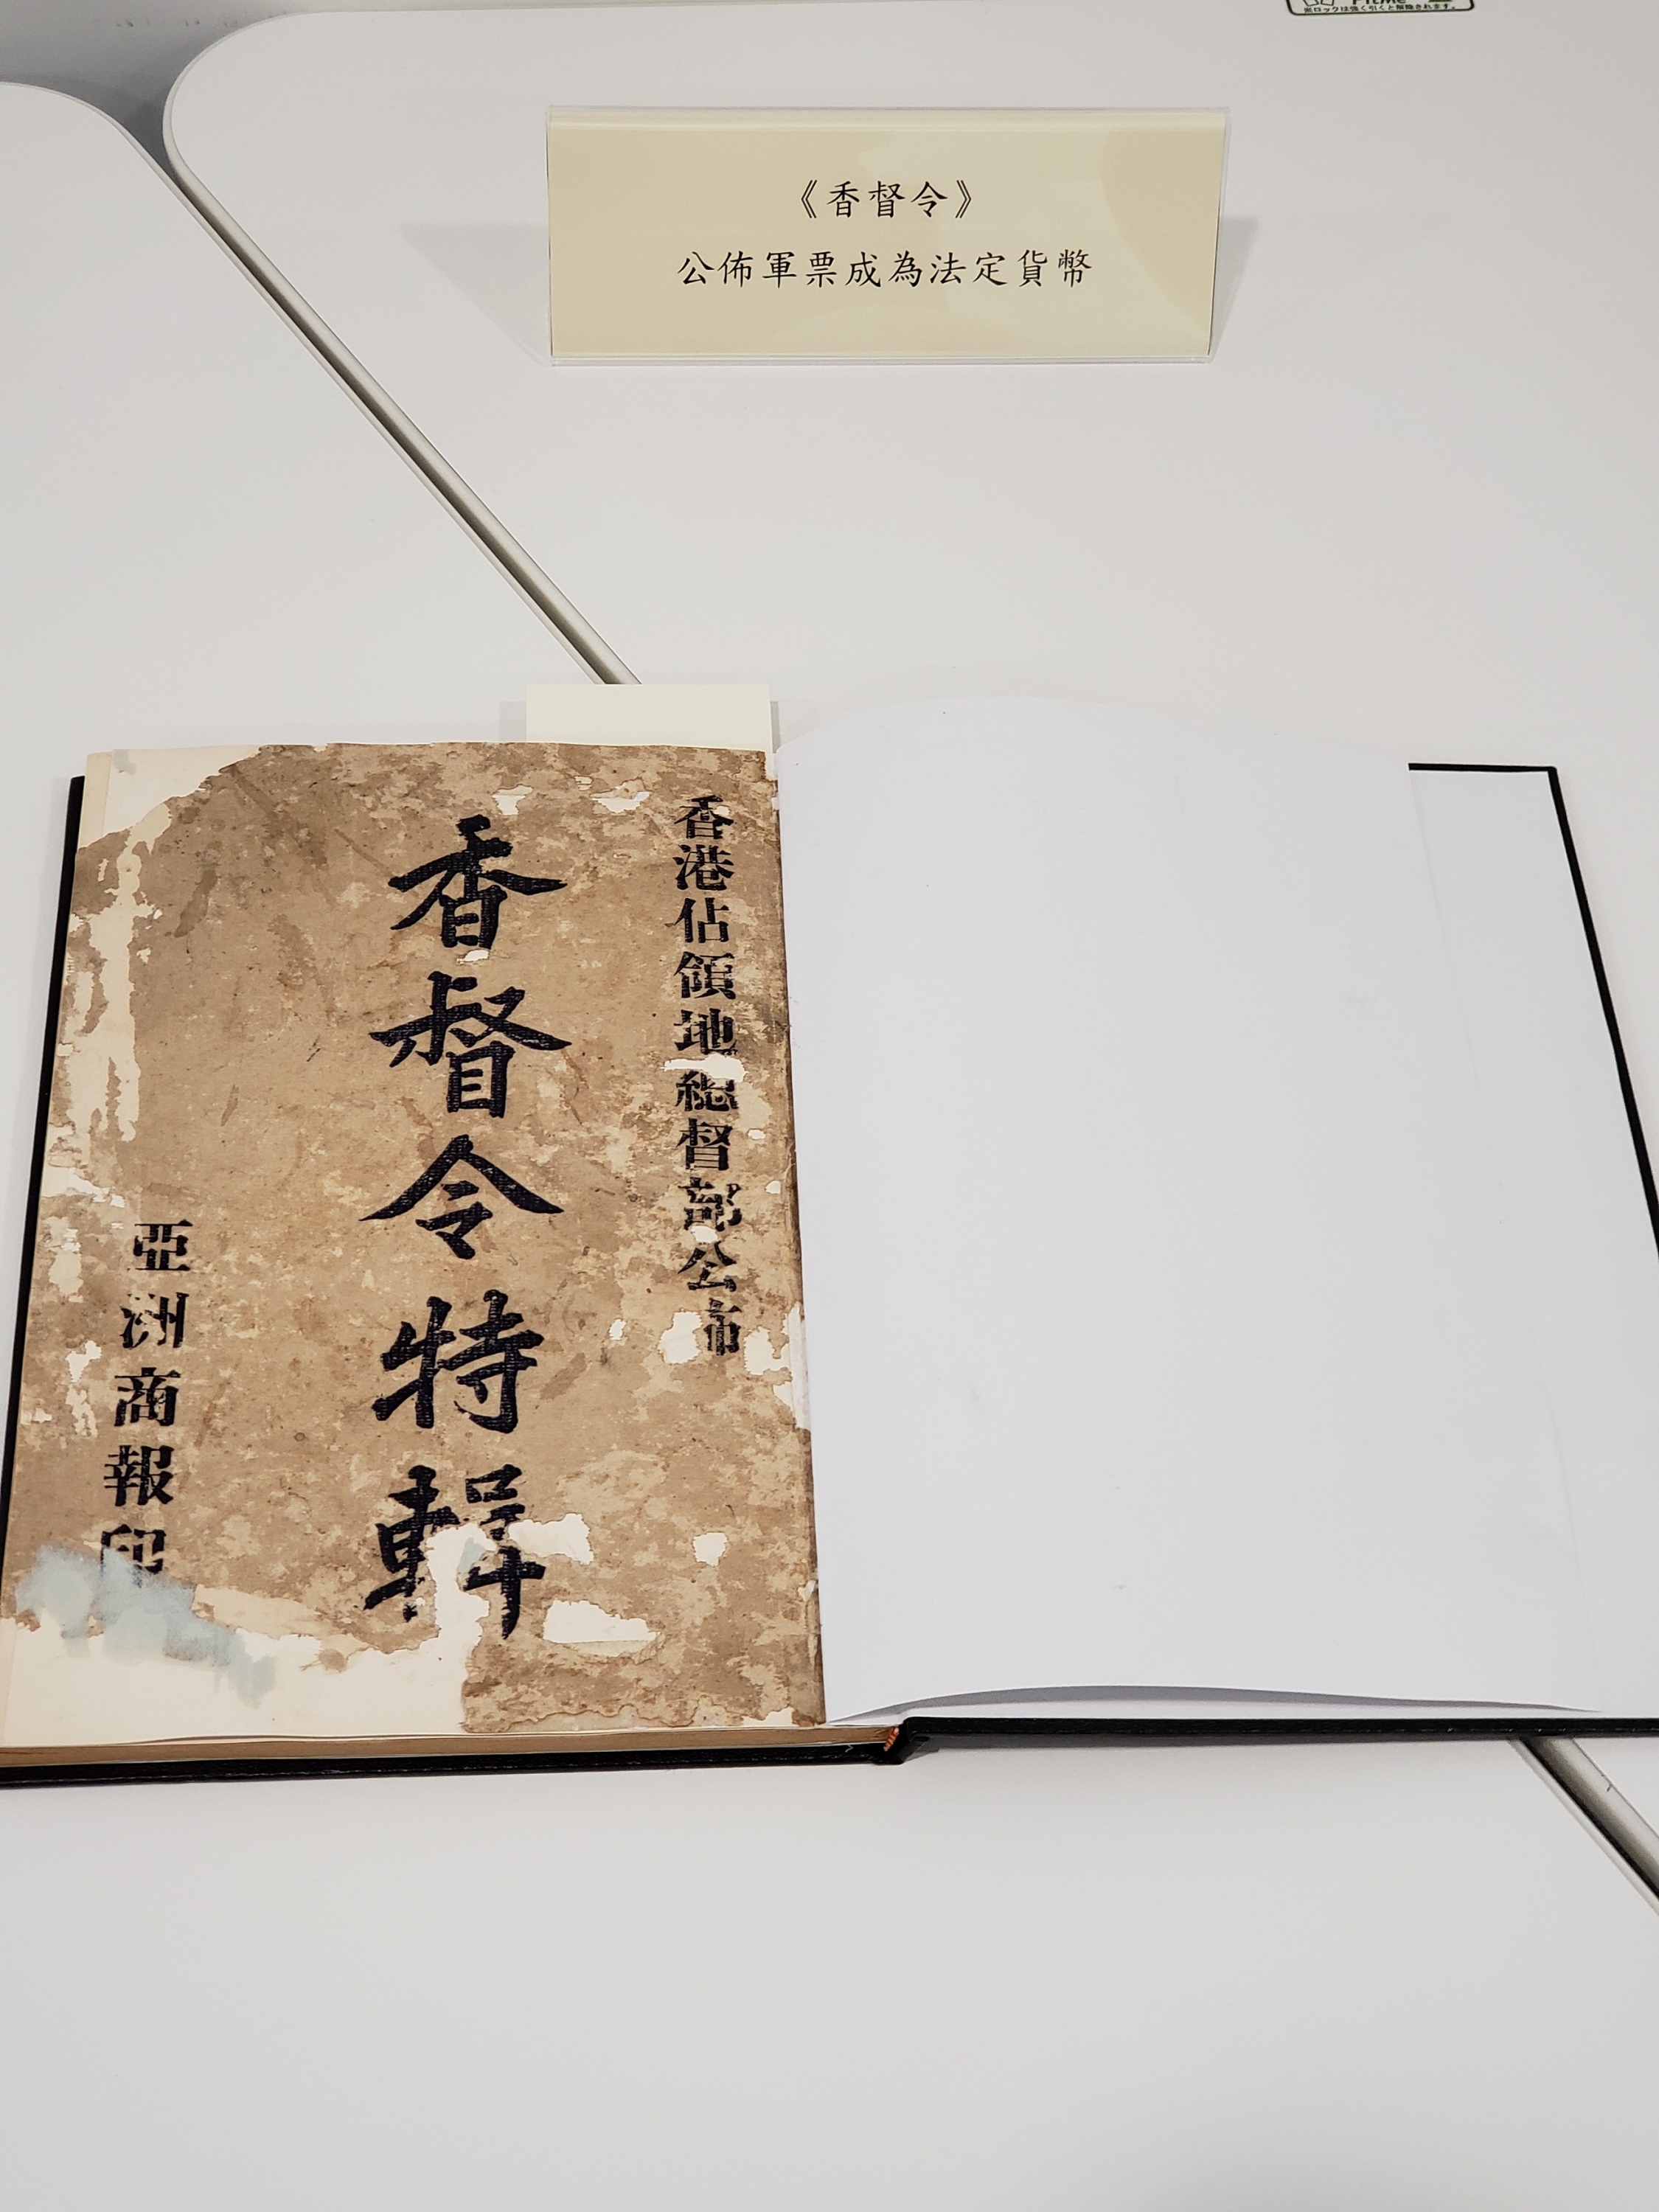 《香督令》
公佈軍票成為法定貨幣
香港佔領地總督部公布
香督令特輯
亞洲商報印